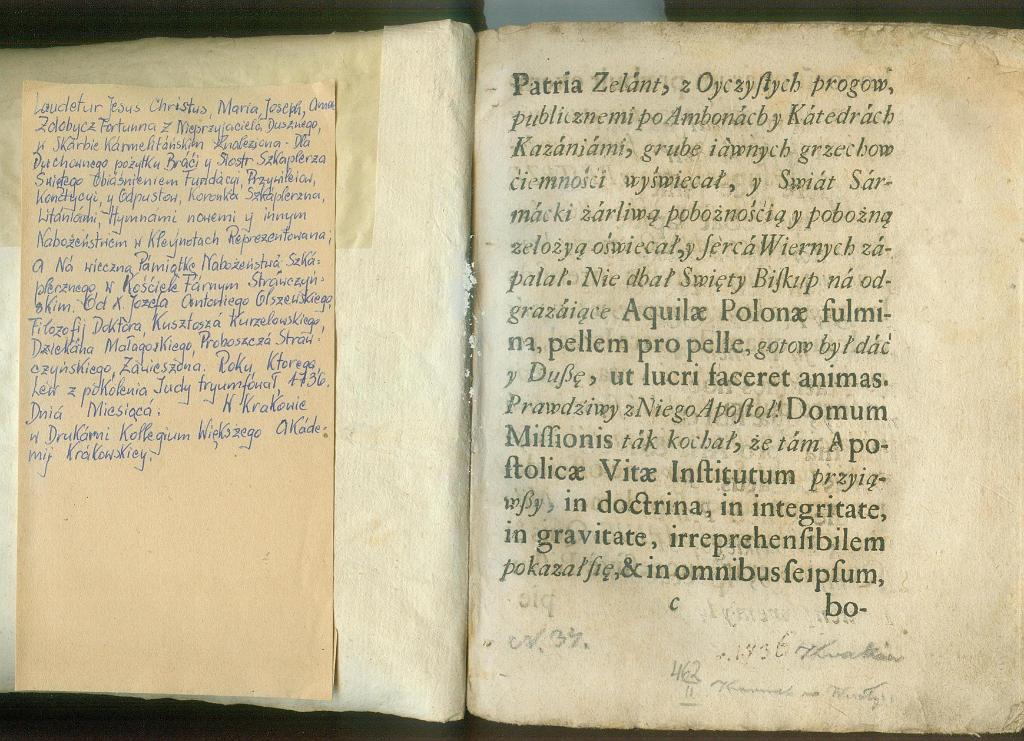 Laudetur Jesus Christus, Maria, Joseph, Anna
Zdobycz Fortunna z Nieprzyjaciela Dusznego,
w Skarbie Karmelitáńskim Znaleziona. Dla
Duchownego pożytku Bráci y Siostr Szkaplerza
Swiętego Obiáśnieniem Fundácyi, Przywileiow,
Kondycyi, y Odpustow, Koronką Szkaplerzna,
Litániámi, Hymnami nowemi y innym
Nabożeństwem w Kleynotach Reprezentowana,
A Ná wieczną Pámiątkę Nabożeństwá Szká-
plerznego w Kościele Fárnym Stráwczyń-
skim. Od X. Jozefa Antoniego Olszewskiego,
Filozofij Doktora, Kusztoszá Kurzelowskiego,
Dziekána Małagoskiego, Proboszczá Straw-
czyńskiego, Záwieszona. Roku, Ktorego
Lew z pokolenia Judy tryumfował 1736.
Dniá Miesiącá: W Krakowie
w Drukárni Kollegium Większego Akáde-
mij Krákowskiey.
Patria Zelánt, z Oyczyſtych progow,
publicznemi po Ambonách y Kátedrách
Kazániámi, grube iáwnych grzechow
ciemności wyświecał, y Swiát Sár-
mácki żárliwą pobożnością y pobożną
zelozyą oświecał, y ſercá Wiernych zá-
palał. Nie dbał Swięty Biſkup ná od-
grazáiące Aquilæ Polonæ fulmi-
na, pellem pro pelle, gotow był dáć
y Dußę, ut lucri faceret animas.
Prawdźiwy z Niego Apoſtoł! Domum
Miſſionis ták kochał, że tám Apo-
ſtolicæ Vitæ Inſtitutum przyią-
wßy, in doctrina, in integritate,
in gravitate, irreprehenſibilem
pokazał ſię, & in omnibus ſeipſum,
c bo-
N. 37.
1736 Krakow
462
II